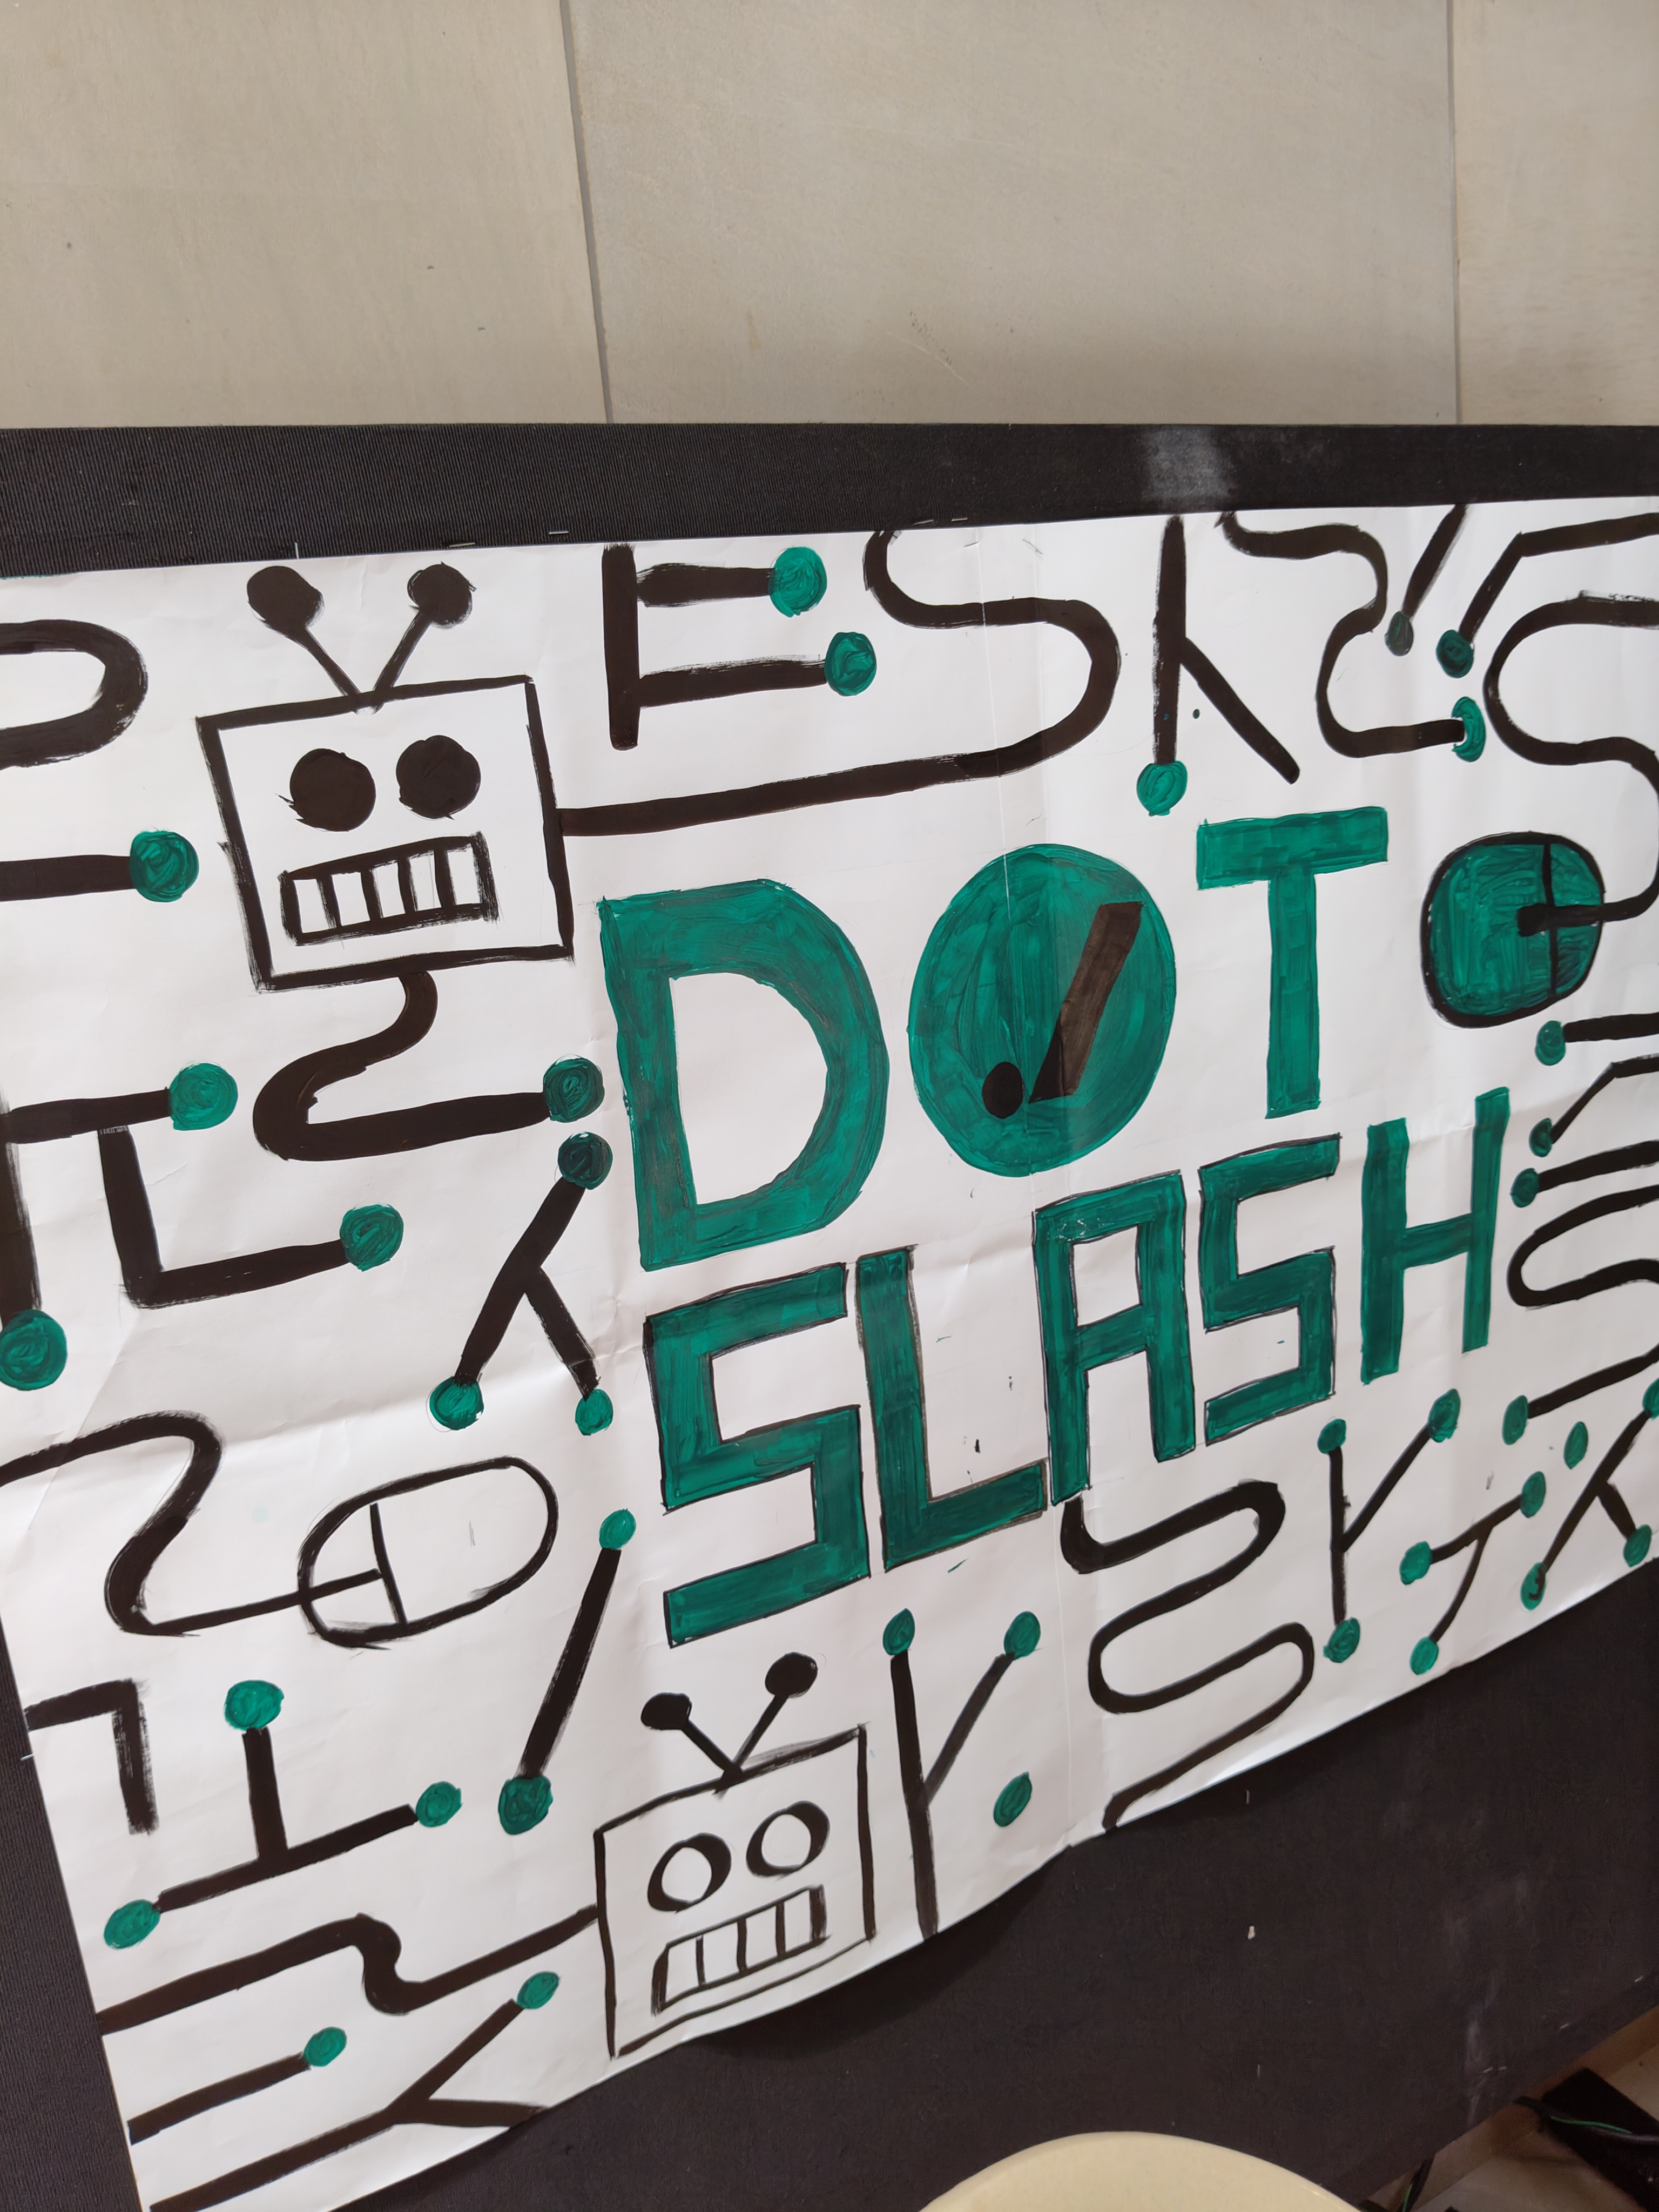 DOT
./
SLASH